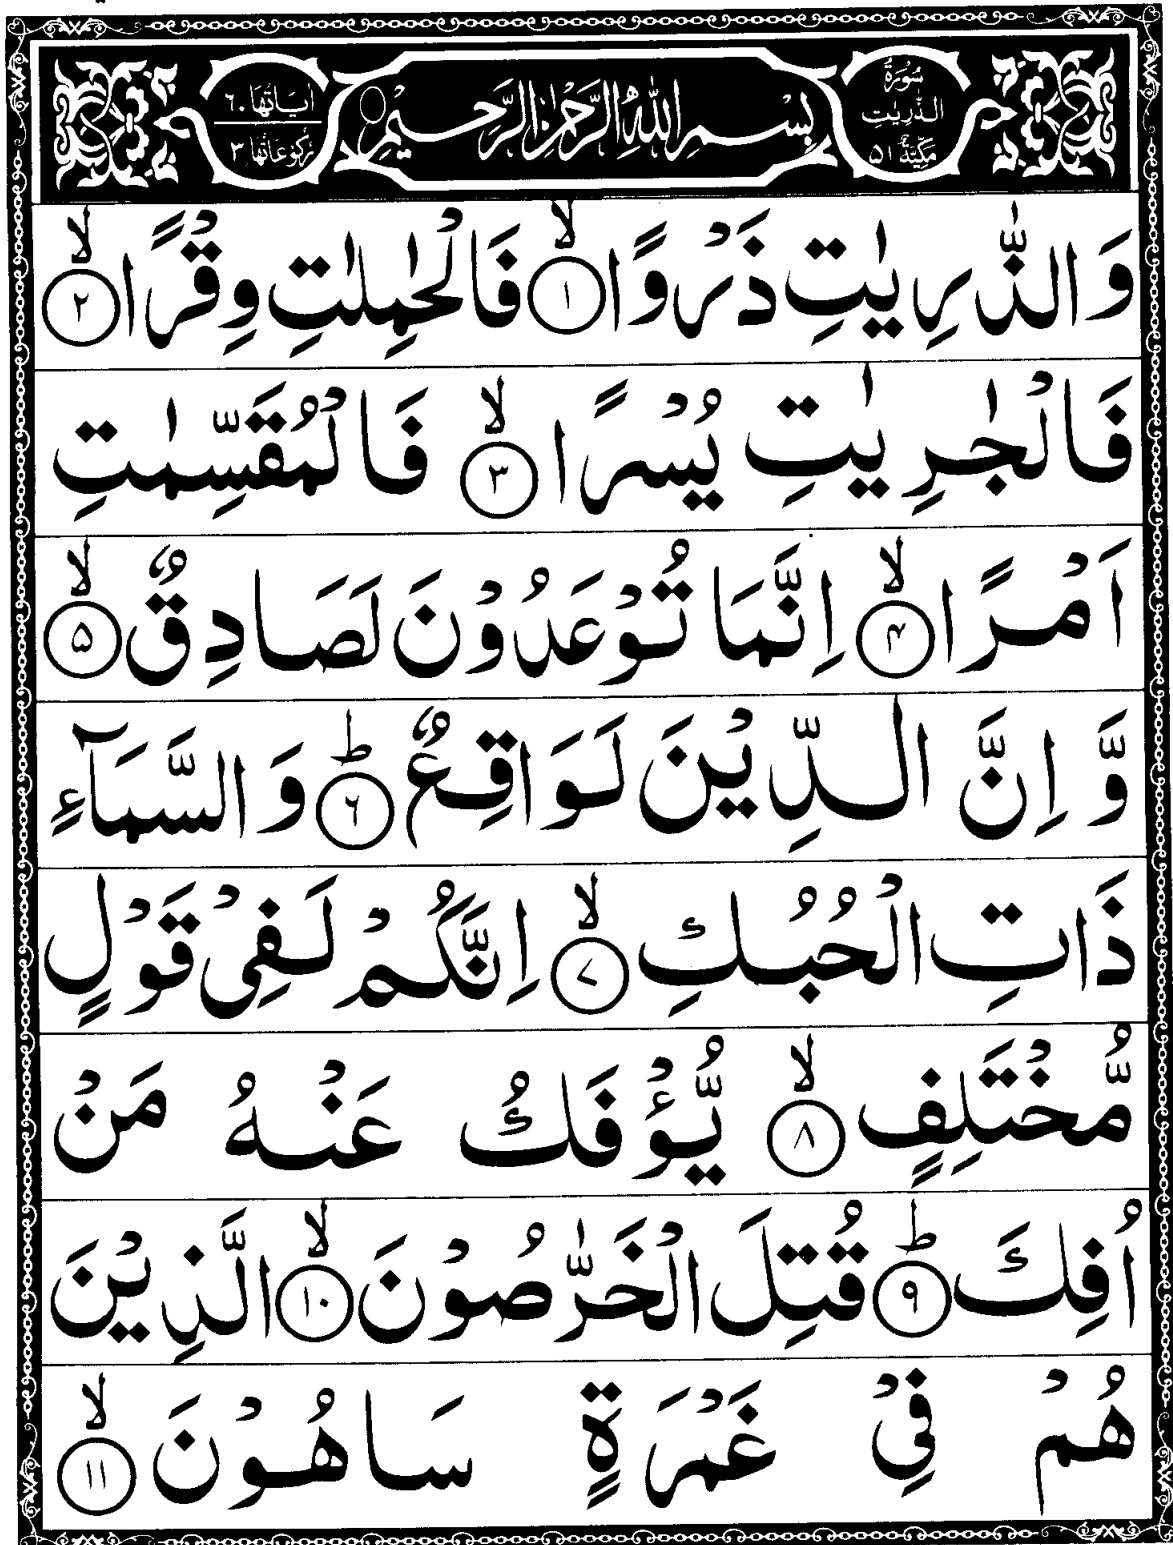 سُوْرَةُ
الذّٰرِيٰتِ
مَكِّيَّةٌ ٥١
بِسْمِ اللهِ الرَّحْمٰنِ الرَّحِيْمِ
اٰيَاتُهَا ٦٠
رُكُوْعَاتُهَا ٣
وَالذّٰرِيٰتِ ذَرْوًا ۙ﴿١﴾ فَالْحٰمِلٰتِ وِقْرًا ۙ﴿٢﴾
فَالْجٰرِيٰتِ يُسْرًا ۙ﴿٣﴾ فَالْمُقَسِّمٰتِ
اَمْرًا ۙ﴿٤﴾ اِنَّمَا تُوْعَدُوْنَ لَصَادِقٌ ۙ﴿٥﴾
وَّ اِنَّ الدِّيْنَ لَوَاقِعٌ ؕ﴿٦﴾ وَالسَّمَآءِ
ذَاتِ الْحُبُكِ ۙ﴿٧﴾ اِنَّكُمْ لَفِيْ قَوْلٍ
مُّخْتَلِفٍ ۙ﴿٨﴾ يُّؤْفَكُ عَنْهُ مَنْ
اُفِكَ ؕ﴿٩﴾ قُتِلَ الْخَرّٰصُوْنَ ۙ﴿١٠﴾ الَّذِيْنَ
هُمْ فِيْ غَمْرَةٍ سَاهُوْنَ ۙ﴿١١﴾